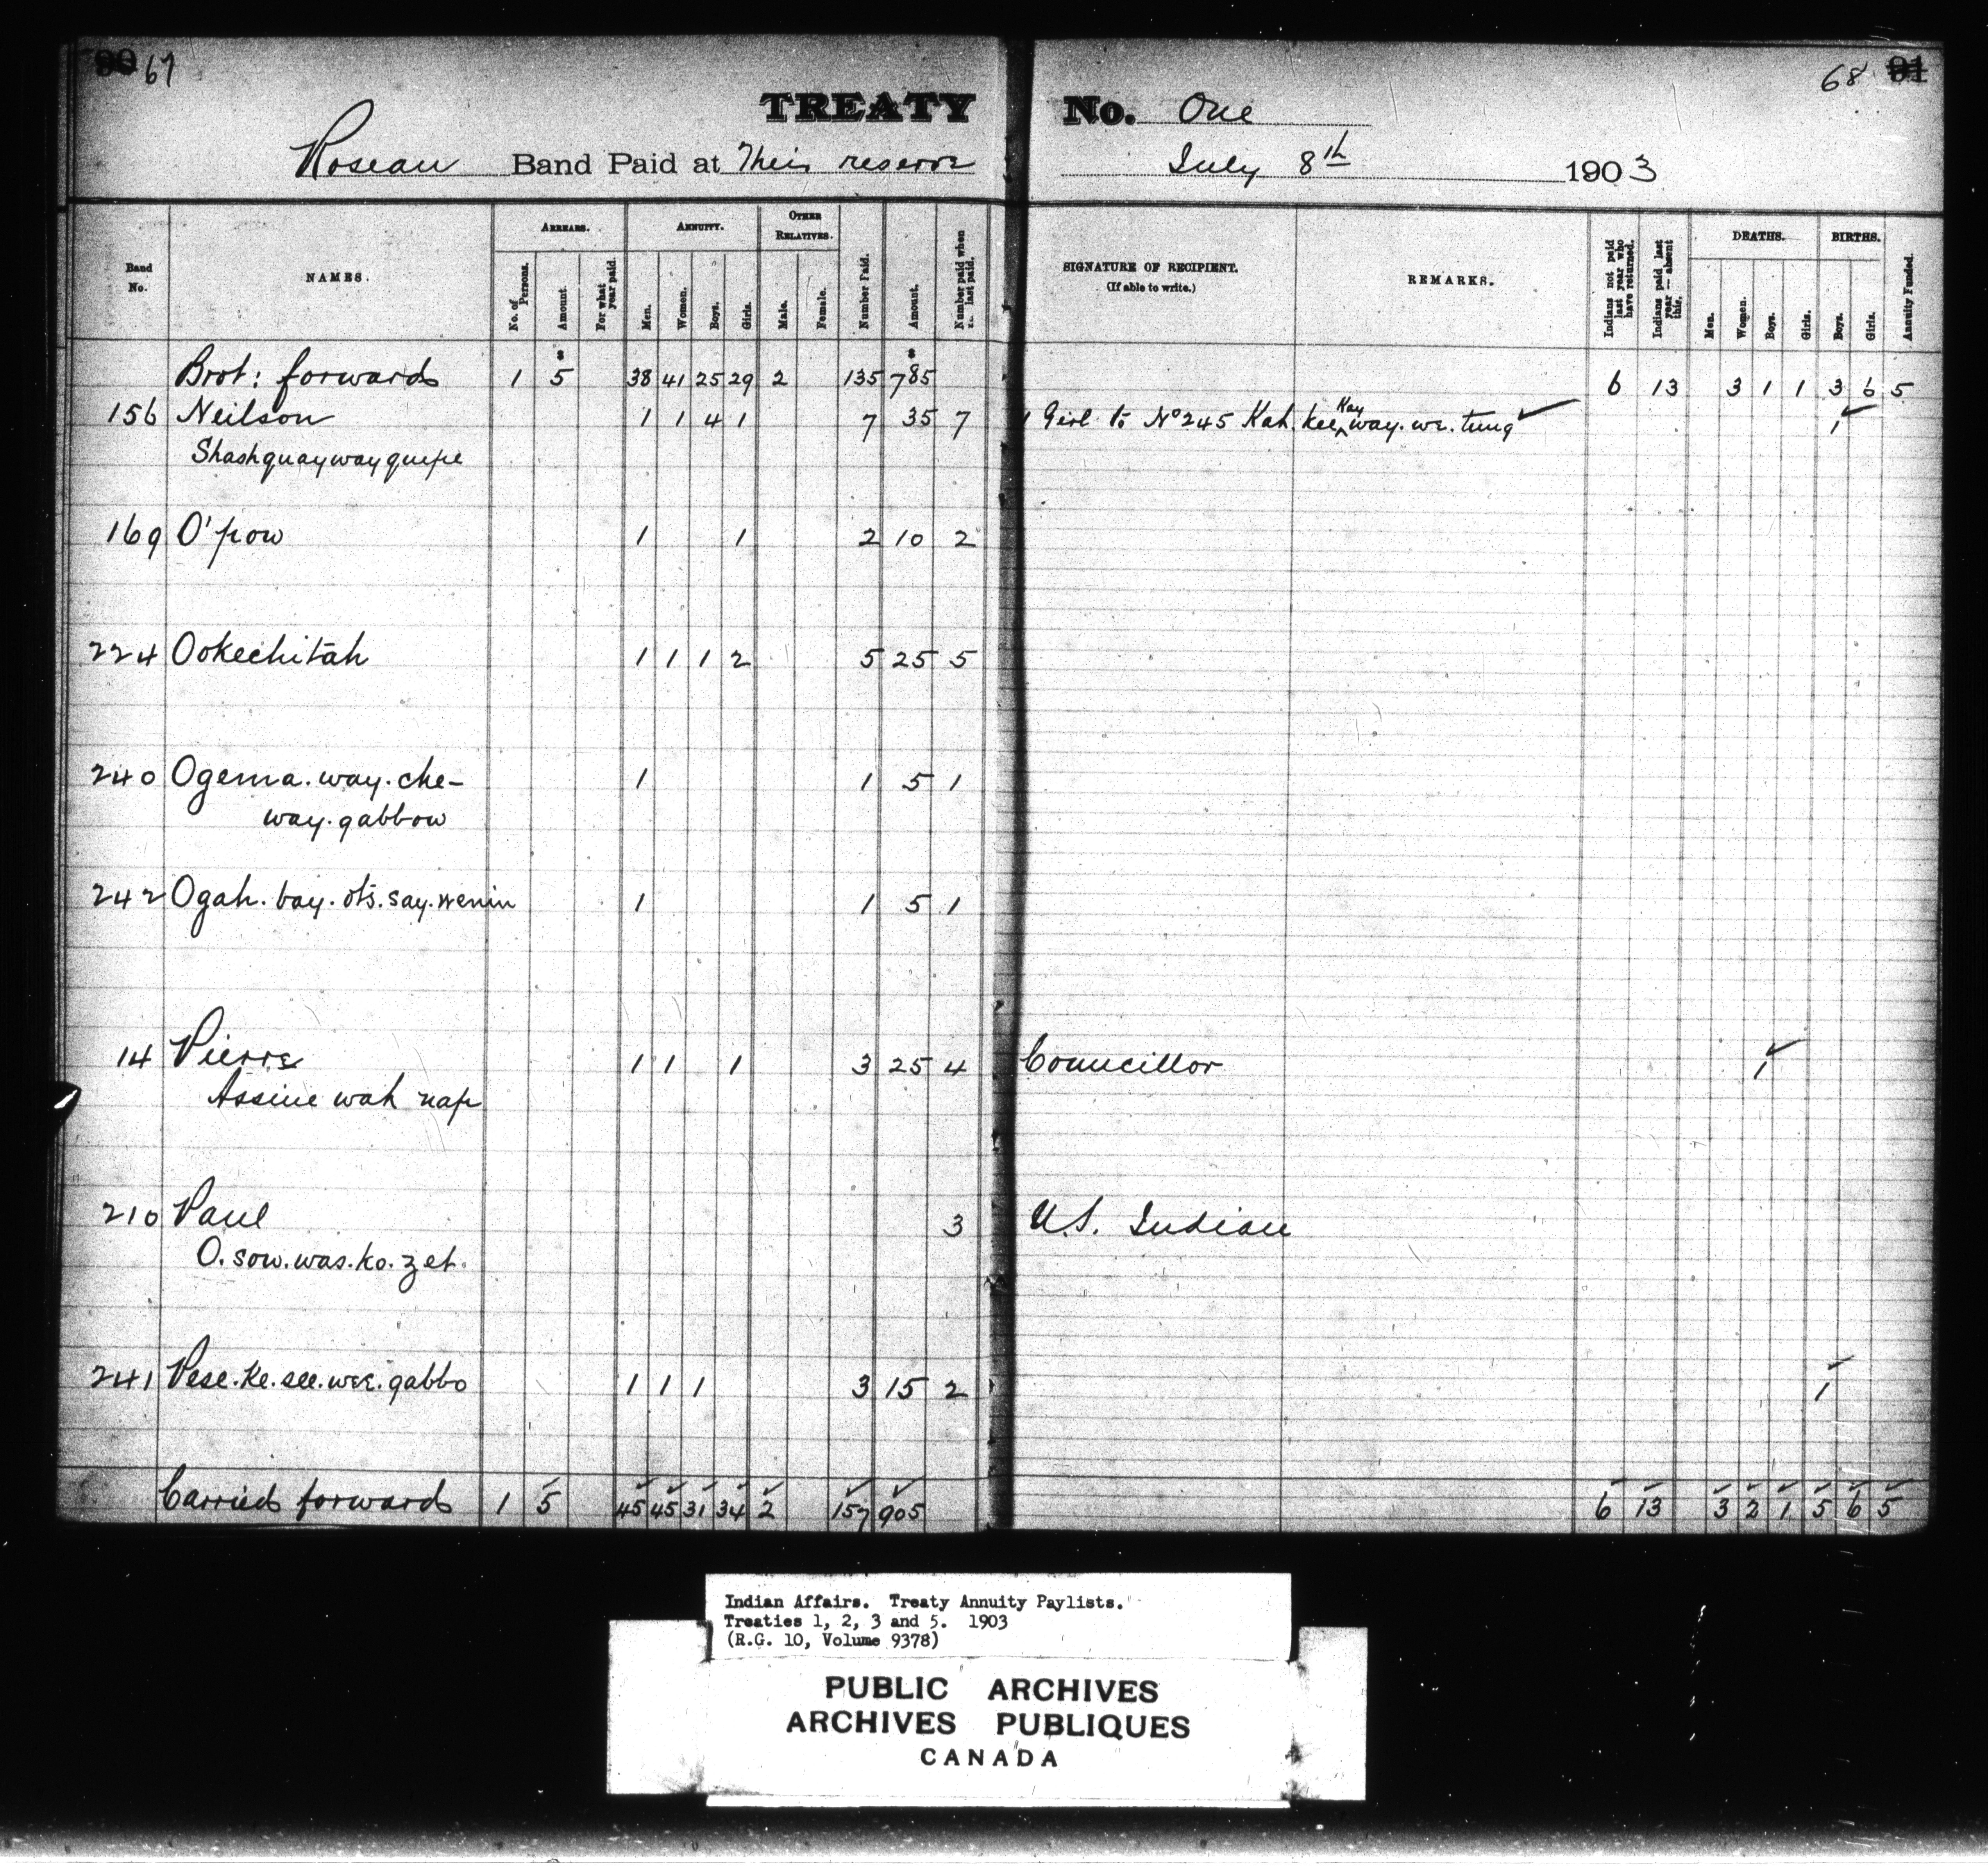 90 67
68 91
TREATY No. One
Roseau Band Paid at Their reserve July 8th 1903
Band No. NAMES. ARREARS. No. of Persons. Amount. For what year paid. ANNUITY. Men. Women. Boys. Girls. OTHER RELATIVES. Male. Female. Number Paid. Amount. Number paid when last paid. SIGNATURE OF RECIPIENT. (If able to write.) REMARKS. Indians not paid last year who have returned. Indians paid last year — absent this. DEATHS. Men. Women. Boys. Girls. BIRTHS. Boys. Girls. Annuity Funded.
Brot: forwards 1 5 38 41 25 29 2 135 785 6 13 3 1 1 3 6 5
156 Neilson 1 1 4 1 7 35 7 1 Girl to No 245 Kah. kee Kay way. we. tung ✓ 1 ✓
Shashquaywayquipe
169 O'pow 1 1 2 10 2
224 Ookechitah 1 1 1 2 5 25 5
240 Ogema. way. che- 1 1 5 1
way. gabbow
242 Ogah. bay. ots. say. wenin 1 1 5 1
14 Pierre 1 1 1 3 25 4 Councillor 1 ✓
Assine wah nap
210 Paul 3 U.S. Indian
O. sow. was. ko. zet.
241 Pese. ke. see. wee. gabbo 1 1 1 3 15 2 1 ✓
Carried forwards 1 5 45 45 31 34 2 157 905 6 13 3 2 1 5 6 5
Indian Affairs. Treaty Annuity Paylists.
Treaties 1, 2, 3 and 5. 1903
(R.G. 10, Volume 9378)
PUBLIC ARCHIVES
ARCHIVES PUBLIQUES
CANADA